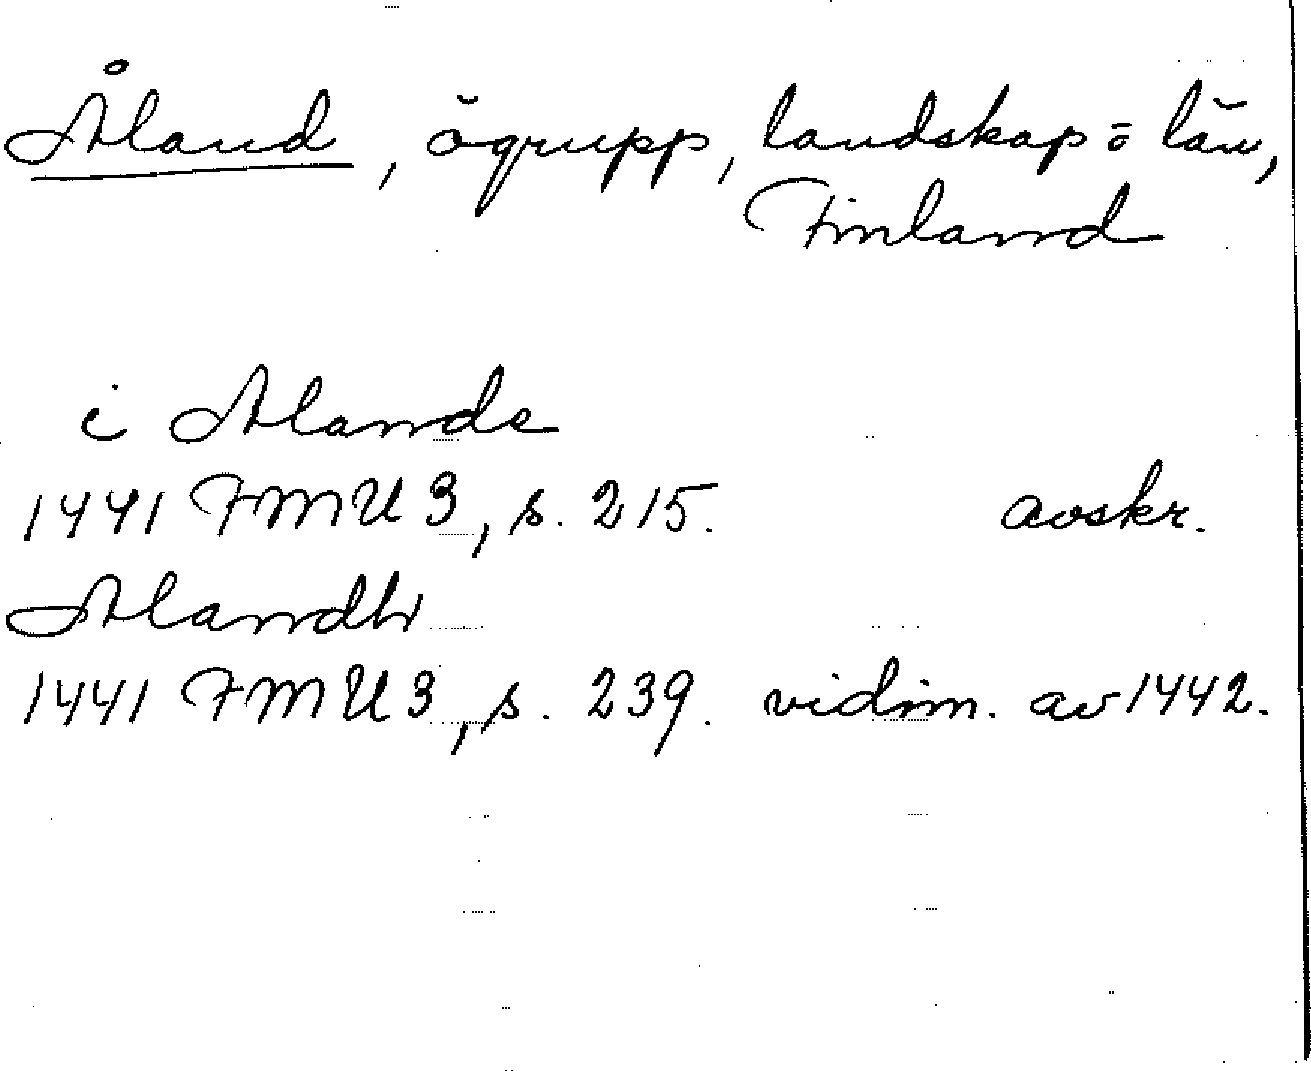 Åland, ögrupp, landskap o län,
Finland
i Alande
1441 FMU 3, s. 215. avskr.
Alandh
1441 FMU 3, s. 239. vidim. av 1442.